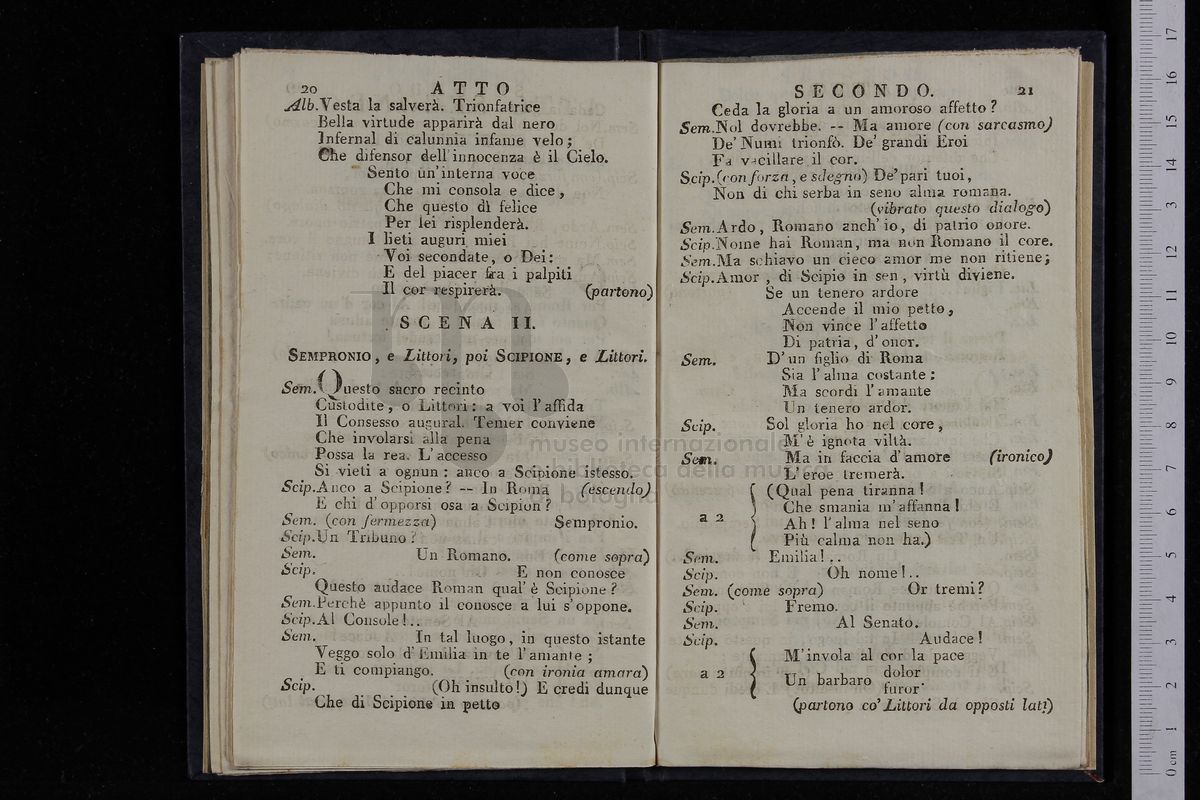 20 ATTO
Alb. Vesta la salverà. Trionfatrice
Bella virtude apparirà dal nero
Infernal di calunnia infame velo;
Che difensor dell'innocenza è il Cielo.
Sento un'interna voce
Che mi consola e dice,
Che questo dì felice
Per lei risplenderà.
I lieti augurj miei
Voi secondate, o Dei:
E del piacer fra i palpiti
Il cor respirerà. (partono)
SCENA II.
SEMPRONIO, e Littori, poi SCIPIONE, e Littori.
Sem. Questo sacro recinto
Custodite, o Littori: a voi l'affida
Il Consesso augural. Temer conviene
Che involarsi alla pena
Possa la rea. L'accesso
Si vieti a ognun: anco a Scipione istesso.
Scip. Anco a Scipione? -- In Roma (escendo)
E chi d'opporsi osa a Scipion?
Sem. (con fermezza) Sempronio.
Scip. Un Tribuno?
Sem. Un Romano. (come sopra)
Scip. E non conosce
Questo audace Roman qual'è Scipione?
Sem. Perchè appunto il conosce a lui s'oppone.
Scip. Al Console!..
Sem. In tal luogo, in questo istante
Veggo solo d'Emilia in te l'amante;
E ti compiango. (con ironia amara)
Scip. (Oh insulto!) E credi dunque
Che di Scipione in petto
SECONDO. 21
Ceda la gloria a un amoroso affetto?
Sem. Nol dovrebbe. -- Ma amore (con sarcasmo)
De' Numi trionfò. De' grandi Eroi
Fa vacillare il cor.
Scip. (con forza, e sdegno) De' pari tuoi,
Non di chi serba in seno alma romana.
(vibrato questo dialogo)
Sem. Ardo, Romano anch'io, di patrio onore.
Scip. Nome hai Roman, ma non Romano il core.
Sem. Ma schiavo un cieco amor me non ritiene;
Scip. Amor, di Scipio in sen, virtù diviene.
Se un tenero ardore
Accende il mio petto,
Non vince l'affetto
Di patria, d'onor.
Sem. D'un figlio di Roma
Sia l'alma costante:
Ma scordi l'amante
Un tenero ardor.
Scip. Sol gloria ho nel core,
M'è ignota viltà.
Sem. Ma in faccia d'amore (ironico)
L'eroe tremerà.
a 2 (Qual pena tiranna!
Che smania m'affanna!
Ah! l'alma nel seno
Più calma non ha.)
Sem. Emilia!..
Scip. Oh nome!..
Sem. (come sopra) Or tremi?
Scip. Fremo.
Sem. Al Senato.
Scip. Audace!
a 2 M'invola al cor la pace
Un barbaro dolor
furor
(partono co' Littori da opposti lati)
museo internazionale
biblioteca della musica
di bologna
0 cm 1 2 3 4 5 6 7 8 9 10 11 12 13 14 15 16 17